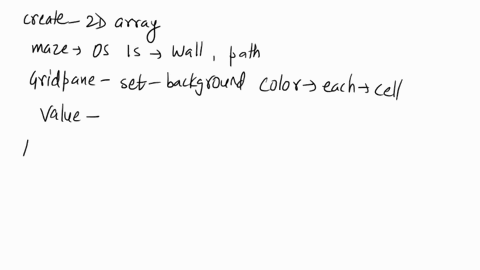 create - 2D array
maze → 0s 1s → wall, path
Gridpane - set - background color → each → cell
Value -
/